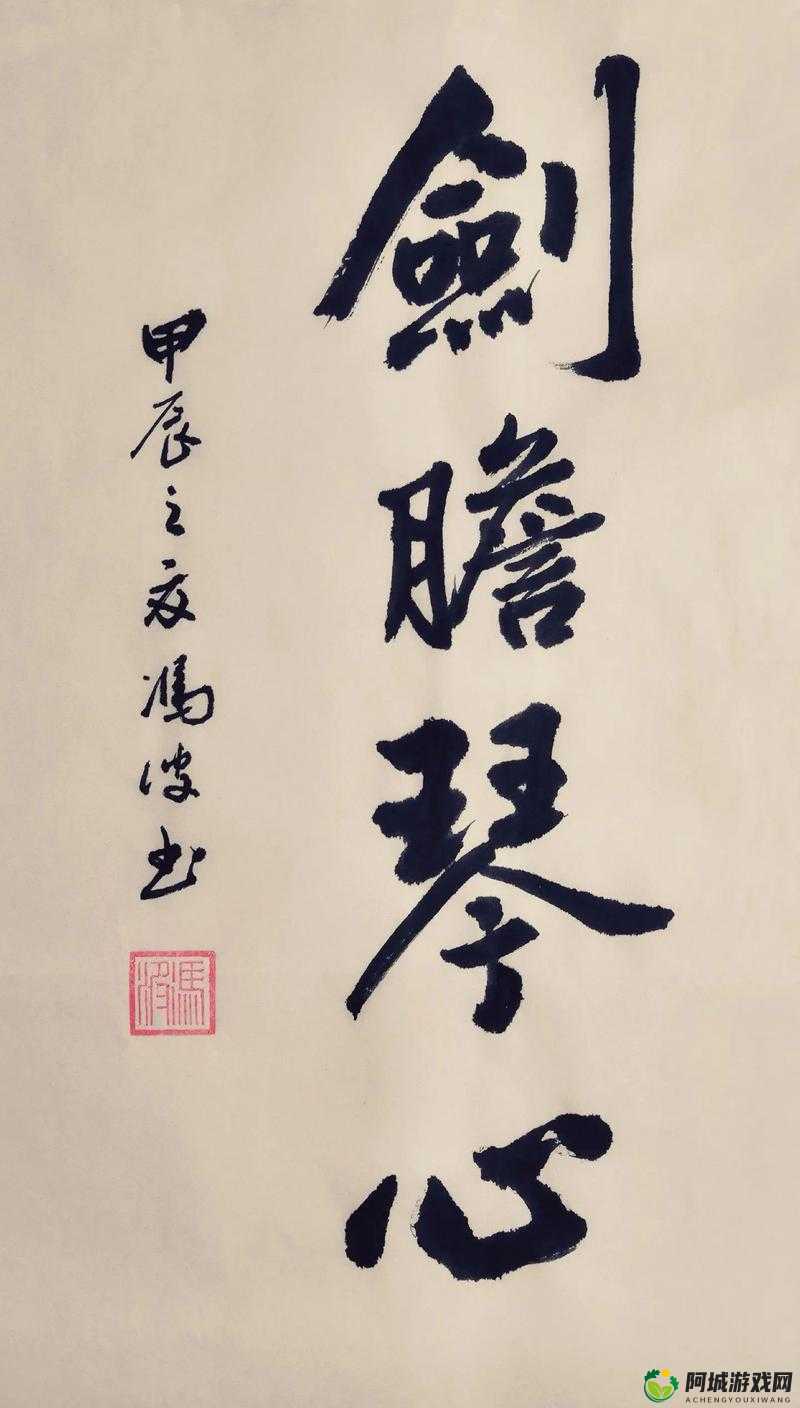 劍膽琴心
甲辰之夏馮俊書
阿城游戏网
ACHENGYOUXIWANG